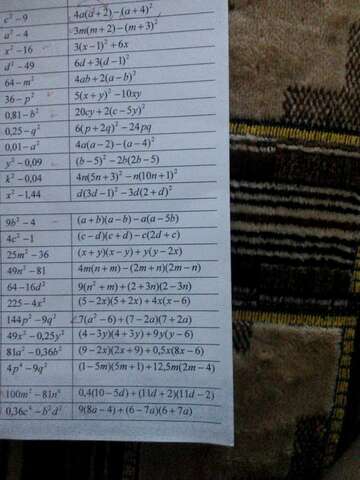 c² − 9 4a(a+2) − (a+4)²
a² − 4 3m(m+2) − (m+3)²
x² − 16 3(x−1)² + 6x
d² − 49 6d + 3(d−1)²
64 − m² 4ab + 2(a−b)²
36 − p² 5(x+y)² − 10xy
0,81 − b² 20cy + 2(c−5y)²
0,25 − q² 6(p+2q)² − 24pq
0,01 − a² 4a(a−2) − (a−4)²
y² − 0,09 (b−5)² − 2b(2b−5)
k² − 0,04 4n(5n+3)² − n(10n+1)²
x² − 1,44 d(3d−1)² − 3d(2+d)²
9b² − 4 (a+b)(a−b) − a(a−5b)
4c² − 1 (c−d)(c+d) − c(2d+c)
25m² − 36 (x+y)(x−y) + y(y−2x)
49n² − 81 4m(n+m) − (2m+n)(2m−n)
64 − 16d² 9(n²+m) + (2+3n)(2−3n)
225 − 4x² (5−2x)(5+2x) + 4x(x−6)
144p² − 9q² 7(a²−6) + (7−2a)(7+2a)
49x² − 0,25y² (4−3y)(4+3y) + 9y(y−6)
81a² − 0,36b² (9−2x)(2x+9) + 0,5x(8x−6)
4p⁴ − 9q² (1−5m)(5m+1) + 12,5m(2m−4)
100m² − 81n⁶ 0,4(10−5d) + (11d+2)(11d−2)
0,36c⁴ − b²d² 9(8a−4) + (6−7a)(6+7a)